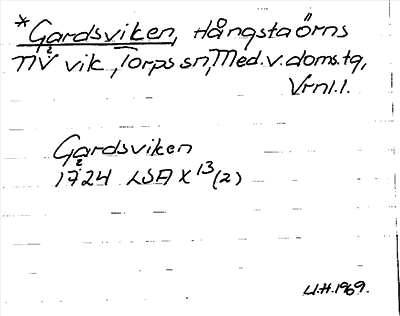 *Gardsviken, Hångstaörns
NV vik, Torps sn, Med.v.doms.tg,
Vrnl.l.
Gardsviken
1724 LSA X 13 (2)
U.H. 1969.